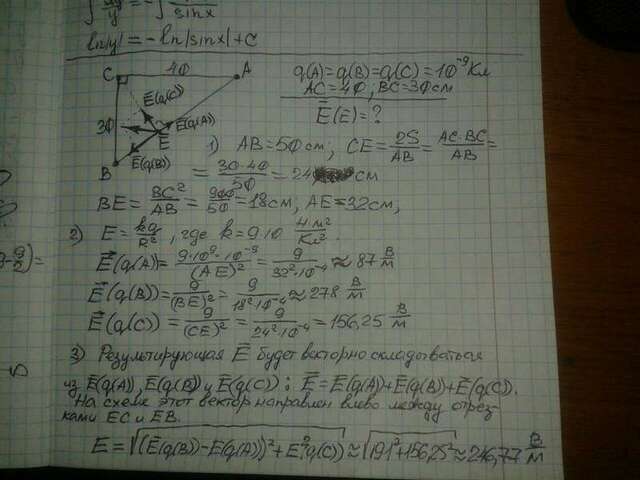 ln|y| = -ln|sinx| + C
C 40 A
30
B
E(q(C))
E(q(A))
E
E(q(B))
q(A)=q(B)=q(C)=10⁻⁹Кл
AC=40; BC=30см
E(E)=?
1) AB=50см, CE=2S/AB=AC·BC/AB=
=30·40/50=24 см
BE=BC²/AB=900/50=18см, AE=32см,
2) E=kq/R², где k=9·10 Н·м²/Кл².
E(q(A))=9·10⁹·10⁻⁹/(AE)²=9/32²·10⁻⁴≈87 В/м
E(q(B))=9/(BE)²=9/18²·10⁻⁴≈278 В/м
E(q(C))=9/(CE)²=9/24²·10⁻⁴=156,25 В/м
3) Результирующая E будет векторно складываться
из E(q(A)), E(q(B)) и E(q(C)): E=E(q(A))+E(q(B))+E(q(C)).
На схеме этот вектор направлен влево между отрез-
ками EC и EB.
E=√((E(q(B))-E(q(A)))²+E²(q(C)))≈√(191²+156,25²)≈246,77 В/м